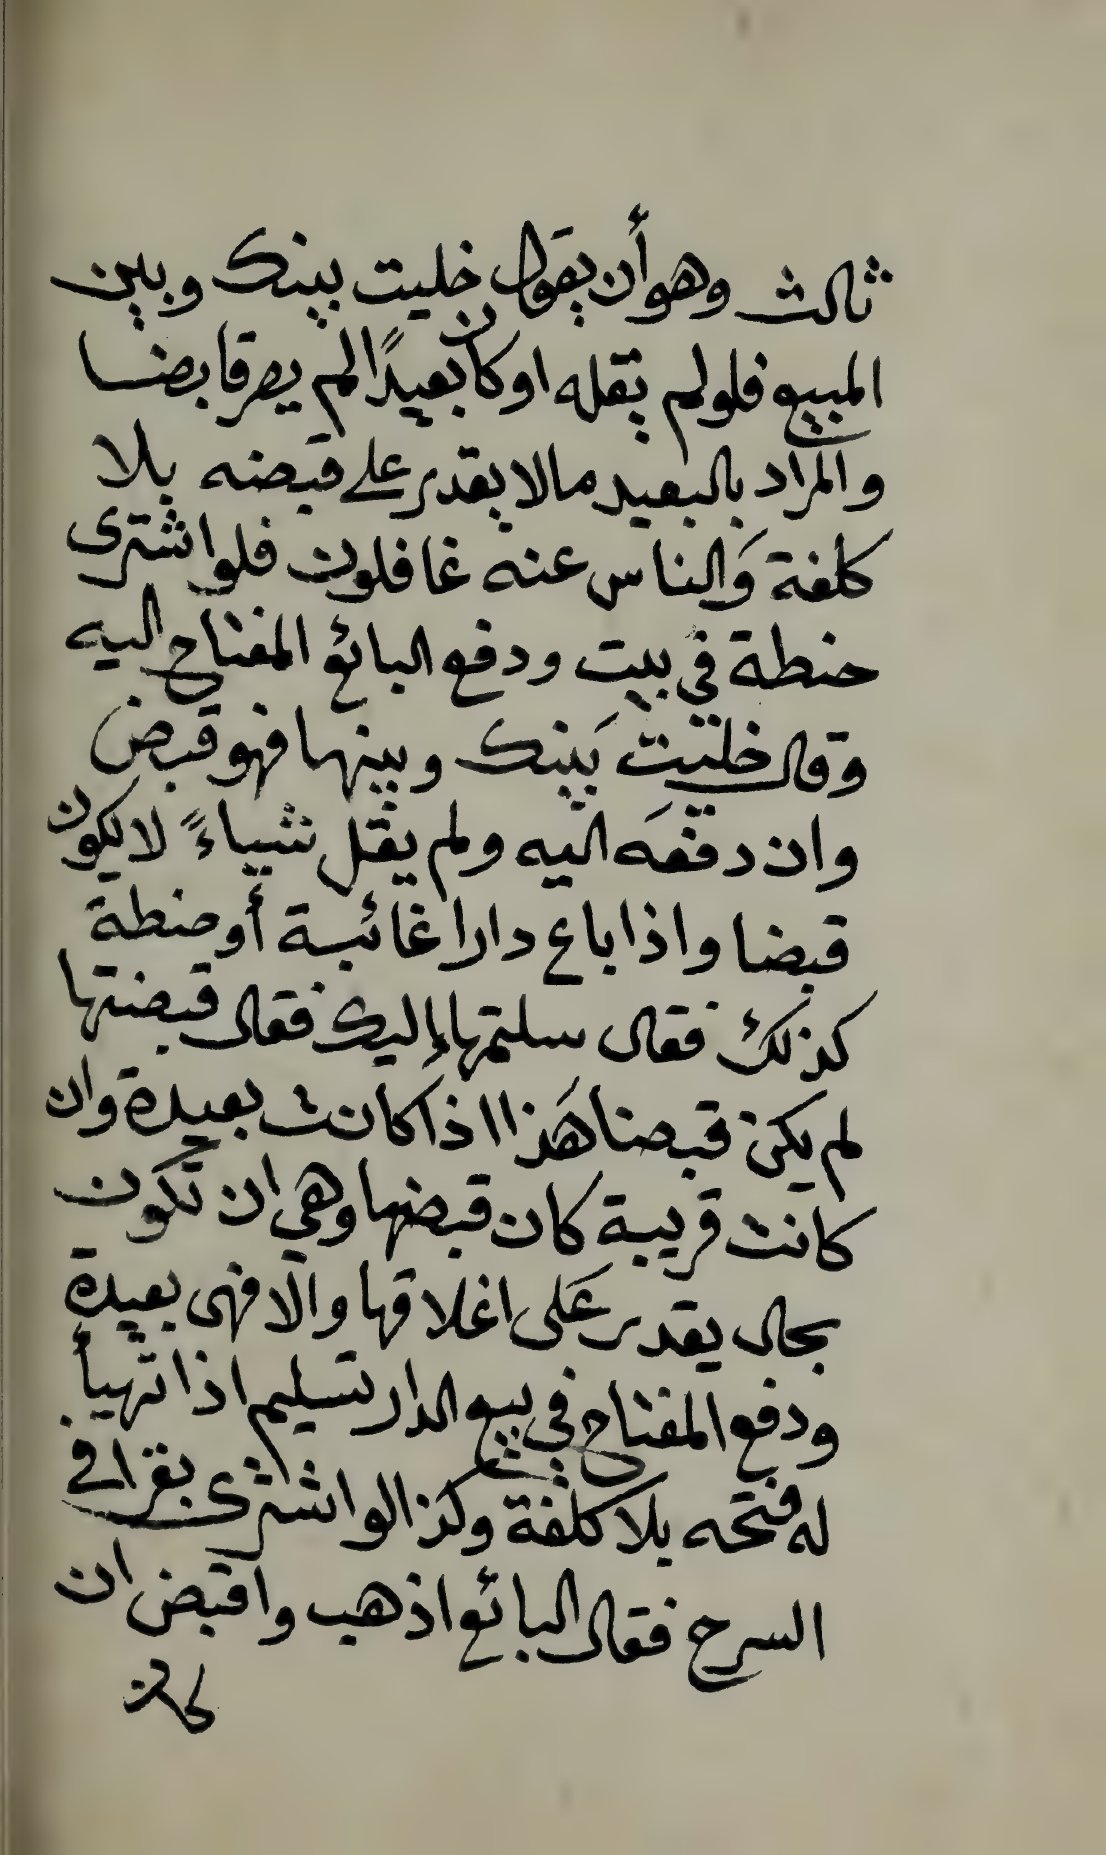 ثالث وهو أن يقول خليت بينك وبين
المبيع فلو لم يقله او كان بعيدًا لم يصر قابضا
والمراد بالبعيد مالا يقدر على قبضه بلا
كلفة وَالناس عنه غافلون فلو اشترى
حنطة في بيت ودفع البائع المفتاح اليه
وقال خليت بَينك وبينها فهو قبض
وان دفعَه اليه ولم يقل شياءً لا يكون
قبضا واذا باع دارا غائبة أو حنطة
كذلك فقال سلتمها إليك فقال قبضتها
لم يكن قبضا هَذا اذا كانت بعيدة وان
كانت قريبة كان قبضها وهي ان تكون
بحال يقدر عَلى اغلاقها والا فهى بعيدة
ودفع المفتاح في بيع الدار تسليم اذا تهيأ
له فتحه بلا كلفة وكذا لو اشترى بقرا في
السرح فقال البائع اذهب واقبض ان
كان